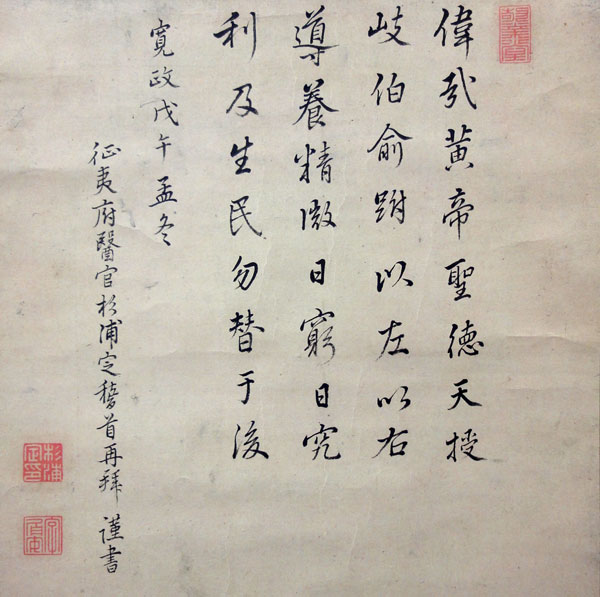 偉哉黄帝聖德天授
岐伯俞跗以左以右
導養精微日窮日究
利及生民勿替于後
寛政戊午孟冬
征夷府醫官杉浦定稽首再拜 謹書
杉浦定印